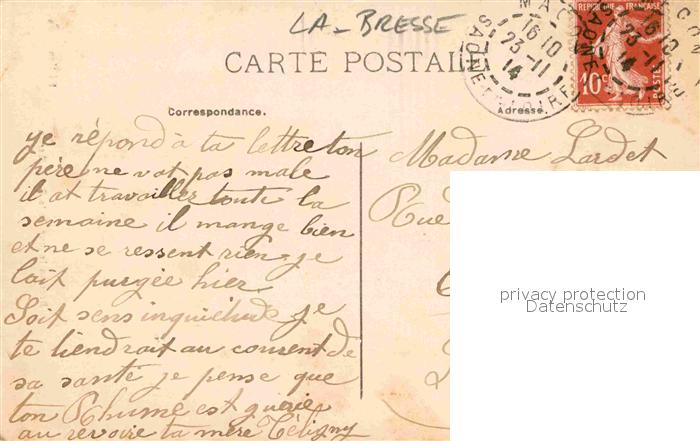 LA-BRESSE
CARTE POSTALE
RÉPUBLIQUE FRANÇAISE
10c
POSTES
16 10
23-11
14
SAONE-ET-LOIRE
16 10
23-11
14
SAONE
Correspondance.
Adresse.
je répond à ta lettre ton
père ne vat pas male
il at travailler toute la
semaine il mange bien
et ne se ressent rien je
lait purgée hier
Soit sens inquiétude je
te tiendrait au courent de
sa santé je pense que
ton Rhume est guérie
au revoire ta mère Téligny
Madame Lardet
Rue
privacy protection
Datenschutz